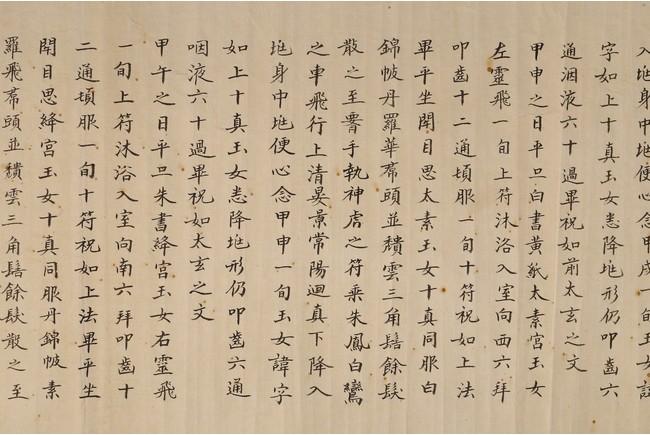 入兆身中兆便心念甲戌一旬玉女諱
字如上十真玉女悉降兆形仍叩齒六
通咽液六十過畢祝如前太玄之文
甲申之日平旦白書黃紙太素宮玉女
左靈飛一旬上符沐浴入室向西六拜
叩齒十二通頓服一旬十符祝如上法
畢平坐閉目思太素玉女十真同服白
錦帔丹羅華帬頭並穨雲三角髻餘髮
散之至𦝫手執神虎之符乘朱鳳白鸞
之車飛行上清晏景常陽迴真下降入
兆身中兆便心念甲申一旬玉女諱字
如上十真玉女悉降兆形仍叩齒六通
咽液六十過畢祝如太玄之文
甲午之日平旦朱書絳宮玉女右靈飛
一旬上符沐浴入室向南六拜叩齒十
二通頓服一旬十符祝如上法畢平坐
閉目思絳宮玉女十真同服丹錦帔素
羅飛帬頭並穨雲三角髻餘髮散之至